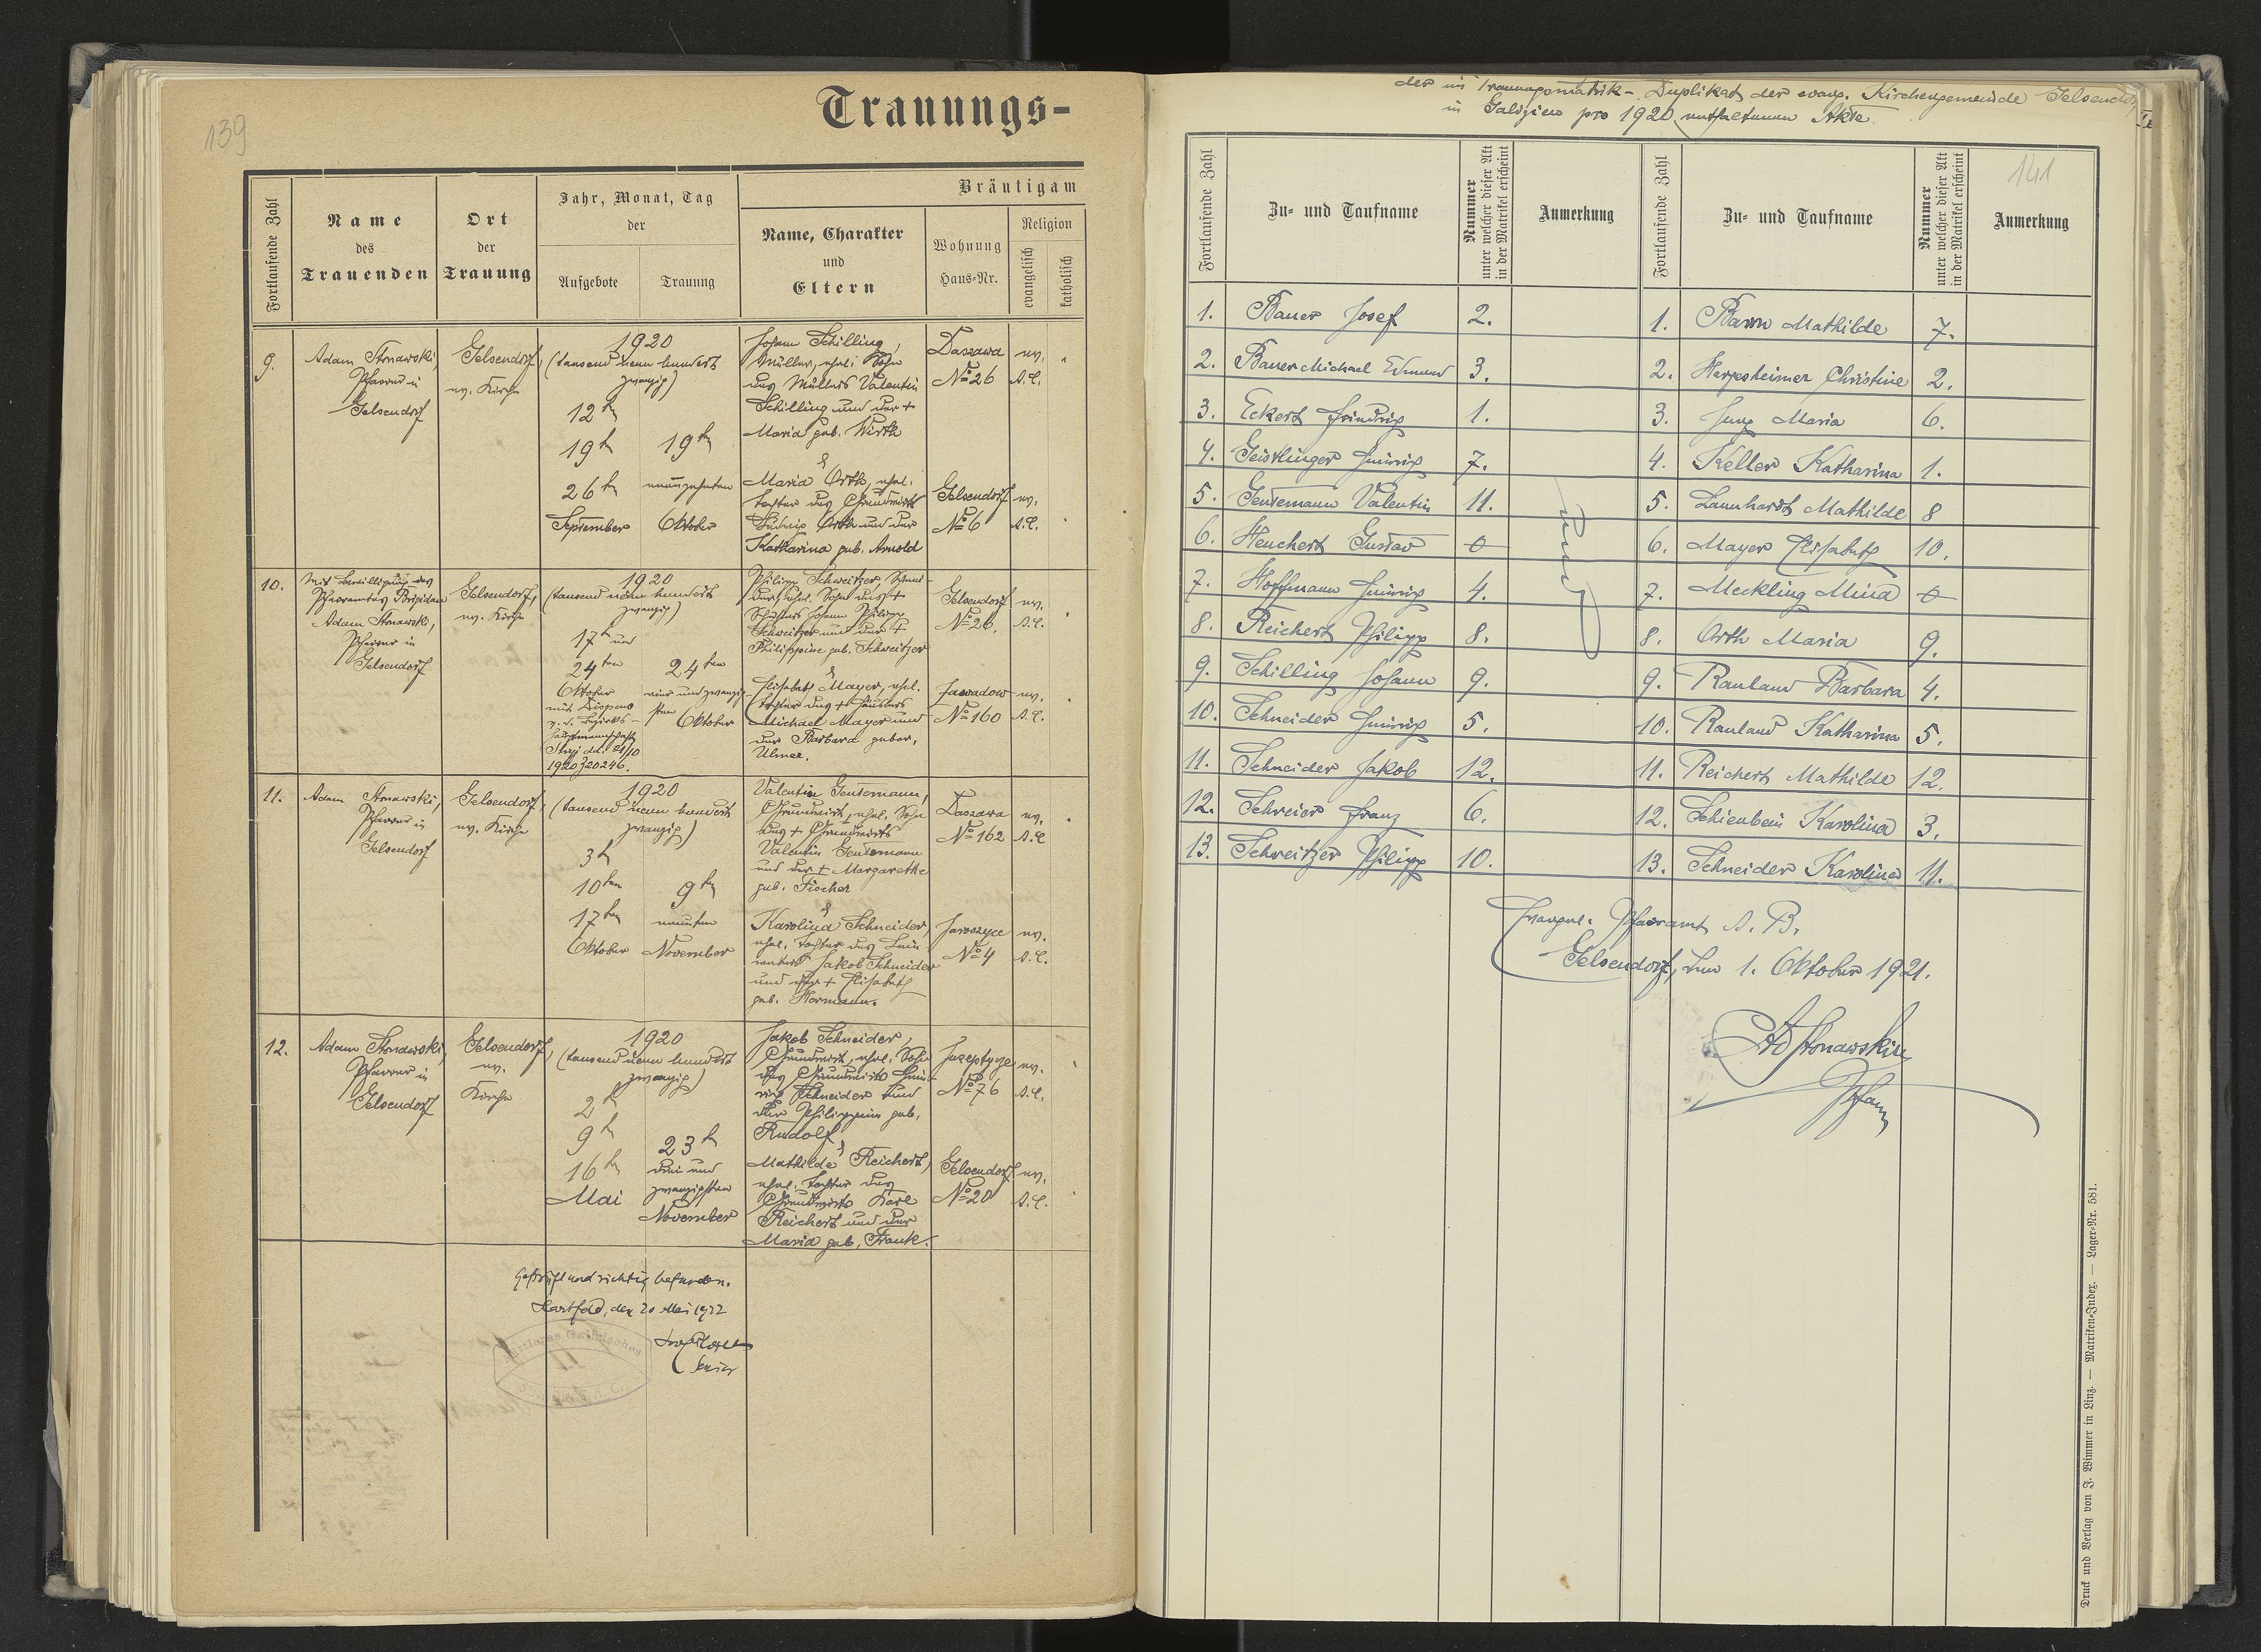 139
Trauungs-
Fortlaufende Zahl
Name
des
Trauenden
Ort
der
Trauung
Jahr, Monat, Tag
der
Aufgebote
Trauung
Bräutigam
Name, Charakter
und
Eltern
Wohnung
Haus-Nr.
Religion
evangelisch
katholisch
9.
Adam Stonawski,
Pfarrer in
Gelsendorf
Gelsendorf,
ev. Kirche
1920
(tausend neun hundert
zwanzig)
12ten
19ten
26ten
September
19ten
neunzehnten
Oktober
Johann Schilling,
Müller, ehel. Sohn
des Müllers Valentin
Schilling und der +
Maria geb. Wirth
&
Maria Orth, ehel.
Tochter des Grundwirts
Ludwig Orth und der
Katharina geb. Arnold
Daszawa
No 26
Gelsendorf
No 6
ev.
A.C.
ev.
A.C.
10.
Mit Bewilligung des
Pfarramtes Brigidau
Adam Stonawski,
Pfarrer in
Gelsendorf
Gelsendorf,
ev. Kirche
1920
(tausend neun hundert
zwanzig)
17ten und
24ten
Oktober
mit Dispens
v. d. Bezirks-
hauptmannschaft
Stryj dd. 21/10
1920 Z 20246.
24ten
vier und zwanzig-
sten Oktober
Philipp Schweitzer, Schnei-
der, ehel. Sohn des +
Schäfers Johann Philipp
Schweitzer und der +
Philippine geb. Schweitzer
&
Elisabeth Mayer, ehel.
Tochter des + Häuslers
Michael Mayer und
der Barbara gebor.
Ulmer.
Gelsendorf
No 26.
Zawadow
No 160
ev.
A.C.
ev.
A.C.
11.
Adam Stonawski,
Pfarrer in
Gelsendorf
Gelsendorf,
ev. Kirche
1920
(tausend neun hundert
zwanzig)
3ten
10ten
17ten
Oktober
9ten
neunten
November
Valentin Gentemann,
Grundwirt, ehel. Sohn
des + Grundwirts
Valentin Gentemann
und der + Margarethe
geb. Fischer
&
Karolina Schneider,
ehel. Tochter des
Jakob Schneider
und der + Elisabeth
geb. Hermann.
Daszawa
No 162
Jaroszyce
No 4
ev.
A.C.
ev.
A.C.
12.
Adam Stonawski,
Pfarrer in
Gelsendorf
Gelsendorf,
ev.
Kirche
1920
(tausend neun hundert
zwanzig)
2ten
9ten
16ten
Mai
23ten
drei und
zwanzigsten
November
Jakob Schneider,
Grundwirt, ehel. Sohn
des Grundwirts Hein-
rich Schneider und
der Philippine geb.
Rudolf
&
Mathilde Reichert,
ehel. Tochter des
Grundwirts Karl
Reichert und der
Maria geb. Frank.
Juseptycze
No 76
Gelsendorf
No 20
ev.
A.C.
ev.
A.C.
Geprüft und richtig befunden.
Hartfeld, den 20 Mai 1922
Senior
der im Trauungsmatrik-Duplikat der evang. Kirchengemeinde Gelsendorf
in Galizien pro 1920 enthaltenen Akte
141
Fortlaufende Zahl
Zu- und Taufname
Nummer
unter welcher dieser Akt
in der Matrikel erscheint
Anmerkung
Fortlaufende Zahl
Zu- und Taufname
Nummer
unter welcher dieser Akt
in der Matrikel erscheint
Anmerkung
1. Bauer Josef 2.
2. Bauer Michael Edmund 3.
3. Eckert Friedrich 1.
4. Geistlinger Heinrich 7.
5. Gentemann Valentin 11.
6. Heuchert Gustav 0
7. Hoffmann Heinrich 4.
8. Reichert Philipp 8.
9. Schilling Johann 9.
10. Schneider Heinrich 5.
11. Schneider Jakob 12.
12. Schreier Franz 6.
13. Schweitzer Philipp 10.
und
1. Baron Mathilde 7.
2. Hergesheimer Christine 2.
3. Jung Maria 6.
4. Keller Katharina 1.
5. Launhardt Mathilde 8
6. Mayer Elisabeth 10.
7. Meckling Mina 0
8. Orth Maria 9.
9. Rauland Barbara 4.
10. Rauland Katharina 5.
11. Reichert Mathilde 12.
12. Schienbein Karolina 3.
13. Schneider Karolina 11.
Evangel. Pfarramt A. B.
Gelsendorf, den 1. Oktober 1921.
Ad Stonawski
Pfarrer
Druck und Verlag von J. Wimmer in Linz. — Matriken-Index. — Lager-Nr. 581.